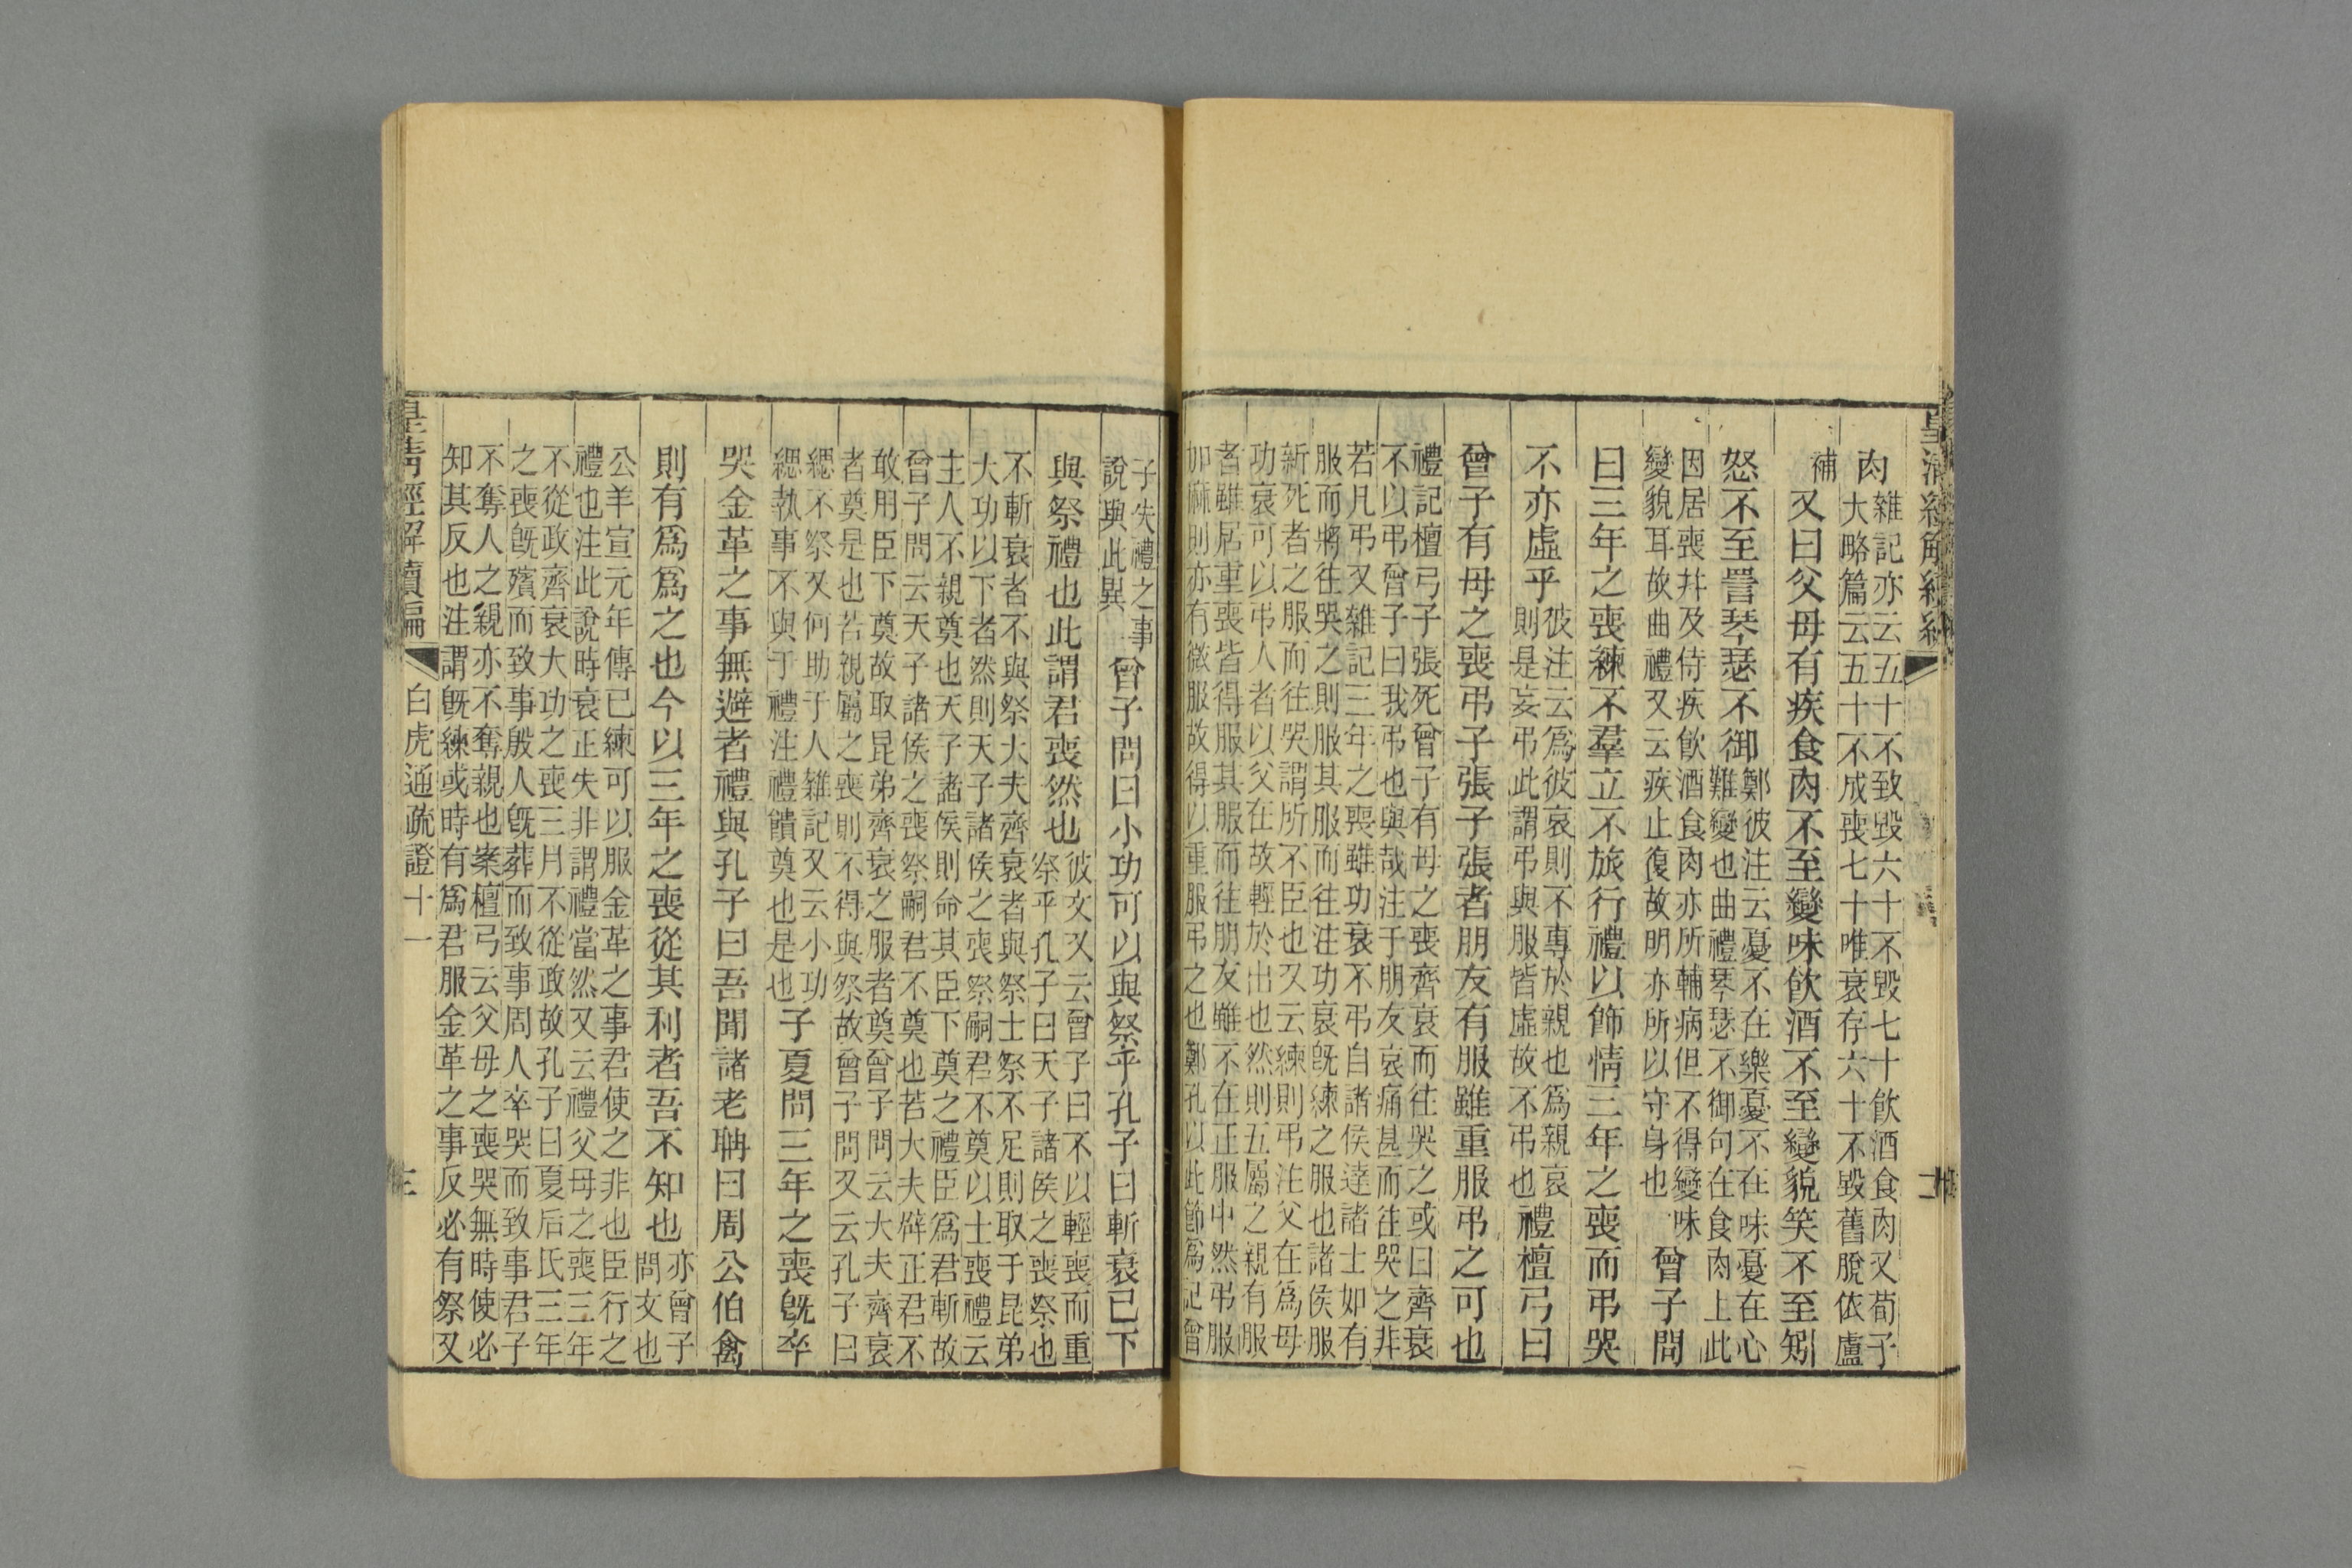 皇清經解續編
肉雜記亦云五十不致毀六十不毀七十飲酒食肉又荀子
大略篇云五十不成喪七十唯衰存六十不毀舊脫依盧
補又曰父母有疾食肉不至變味飲酒不至變貌笑不至矧
怒不至詈琴瑟不御鄭彼注云憂不在樂憂不在味憂在心
難變也曲禮琴瑟不御句在食肉上此
因居喪幷及侍疾飲酒食肉亦所輔病但不得變味
變貌耳故曲禮又云疾止復故明亦所以守身也曾子問
曰三年之喪練不羣立不旅行禮以飾情三年之喪而弔哭
不亦虛乎彼注云為彼哀則不專於親也為親哀
則是妄弔此謂弔與服皆虛故不弔也禮檀弓曰
曾子有母之喪弔子張子張者朋友有服雖重服弔之可也
禮記檀弓子張死曾子有母之喪齊衰而往哭之或曰齊衰
不以弔曾子曰我弔也與哉注于朋友哀痛甚而往哭之非
若凡弔又雜記三年之喪雖功衰不弔自諸侯達諸士如有
服而將往哭之則服其服而往注功衰旣練之服也諸侯服
新死者之服而往哭謂所不臣也又云練則弔注父在為母
功衰可以弔人者以父在故輕於出也然則五屬之親有服
者雖居重喪皆得服其服而往朋友雖不在正服中然弔服
加麻則亦有微服故得以重服弔之也鄭孔以此節為記曾
子失禮之事
說與此異曾子問曰小功可以與祭乎孔子曰斬衰已下
與祭禮也此謂君喪然也彼文又云曾子曰不以輕喪而重
祭乎孔子曰天子諸侯之喪祭也
不斬衰者不與祭大夫齊衰者與祭士祭不足則取于昆弟
大功以下者然則天子諸侯之喪祭嗣君不奠以士喪禮云
主人不親奠也天子諸侯則命其臣下奠之禮臣為君斬故
曾子問云天子諸侯之喪祭嗣君不奠也若大夫辟正君不
敢用臣下奠故取昆弟齊衰之服者奠曾子問云大夫齊衰
者奠是也若親屬之喪則不得與祭故曾子問又云孔子曰
緦不祭又何助于人雜記又云小功
緦執事不與于禮注禮饋奠也是也子夏問三年之喪旣卒
哭金革之事無避者禮與孔子曰吾聞諸老聃曰周公伯禽
則有為為之也今以三年之喪從其利者吾不知也亦曾子
問文也
公羊宣元年傳已練可以服金革之事君使之非也臣行之
禮也注此說時衰正失非謂禮當然又云禮父母之喪三年
不從政齊衰大功之喪三月不從政故孔子曰夏后氏三年
之喪旣殯而致事殷人旣葬而致事周人卒哭而致事君子
不奪人之親亦不奪親也案檀弓云父母之喪哭無時使必
知其反也注謂旣練或時有為君服金革之事反必有祭又
皇清經解續編
白虎通疏證十一